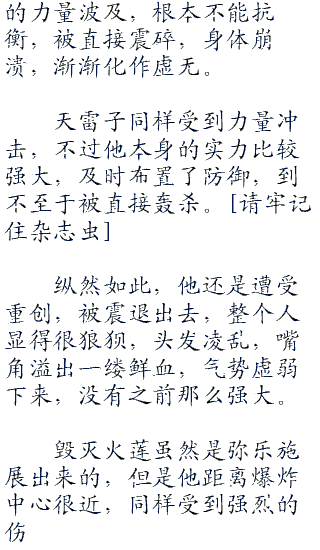 的力量波及，根本不能抗
衡，被直接震碎，身体崩
溃，渐渐化作虚无。
天雷子同样受到力量冲
击，不过他本身的实力比较
强大，及时布置了防御，到
不至于被直接轰杀。[请牢记
住杂志虫]
纵然如此，他还是遭受
重创，被震退出去，整个人
显得很狼狈，头发凌乱，嘴
角溢出一缕鲜血，气势虚弱
下来，没有之前那么强大。
毁灭火莲虽然是弥乐施
展出来的，但是他距离爆炸
中心很近，同样受到强烈的
伤